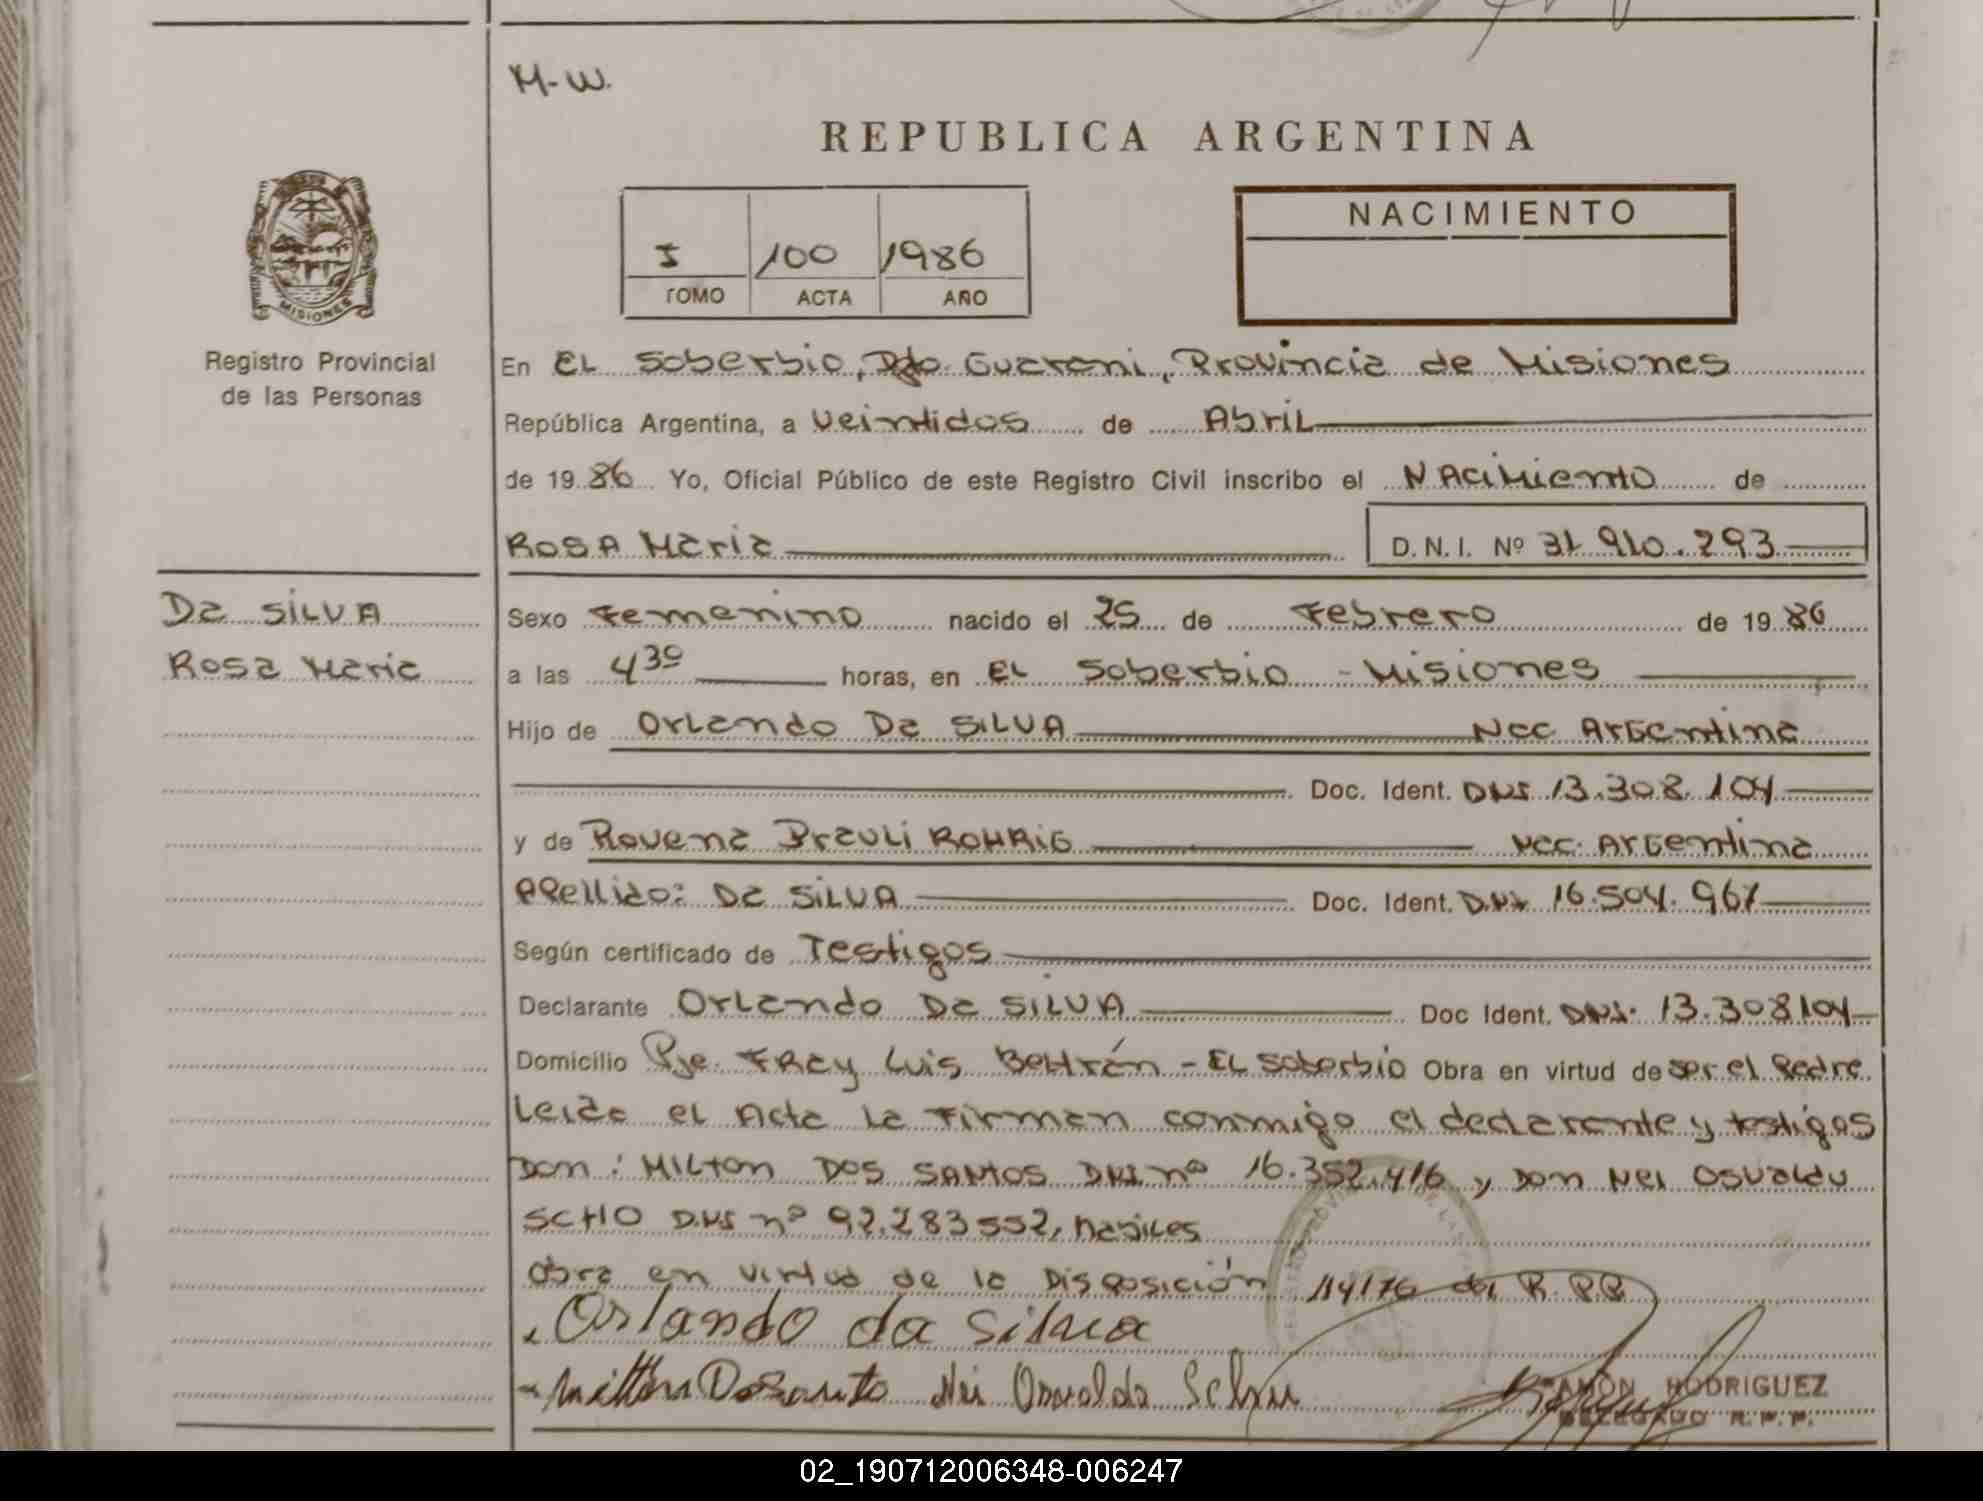 M-W.
REPUBLICA ARGENTINA
I 100 1986
TOMO ACTA AÑO
NACIMIENTO
MISIONES
Registro Provincial
de las Personas
En EL Soberbio, Dpto. Guarani, Provincia de Misiones
República Argentina, a veintidos de Abril
de 1986 Yo, Oficial Público de este Registro Civil inscribo el NAcimiento de
ROSA Maria D.N.I. Nº 31.910.293
Da SILVA
Rosa Maria
Sexo Femenino nacido el 25 de Febrero de 1986
a las 4 30 horas, en EL Soberbio - Misiones
Hijo de Orlando Da SILVA Nac Argentina
Doc. Ident. DNI 13.308.104
y de Rovena Brauli ROHRIG Nac. Argentina
Apellido: Da SILVA Doc. Ident. DNI 16.504.967
Según certificado de Testigos
Declarante Orlando Da SILVA Doc Ident. DNI. 13.308104
Domicilio Pje. FRay Luis Beltrán - EL Soberbio Obra en virtud de ser el Padre
Leida el Acta La Firman conmigo el declarante y testigos
Don: MILTON DOS SANTOS DNI nº 16.352.416 y Don Nei Osvaldo
SCHO DNI nº 92.283552, habiles
Obra en virtud de la Disposición 114/76 del R.P.P.
Orlando da Silva
Nei Osvaldo
RAMON RODRIGUEZ
DELEGADO R.P.P.
02_190712006348-006247